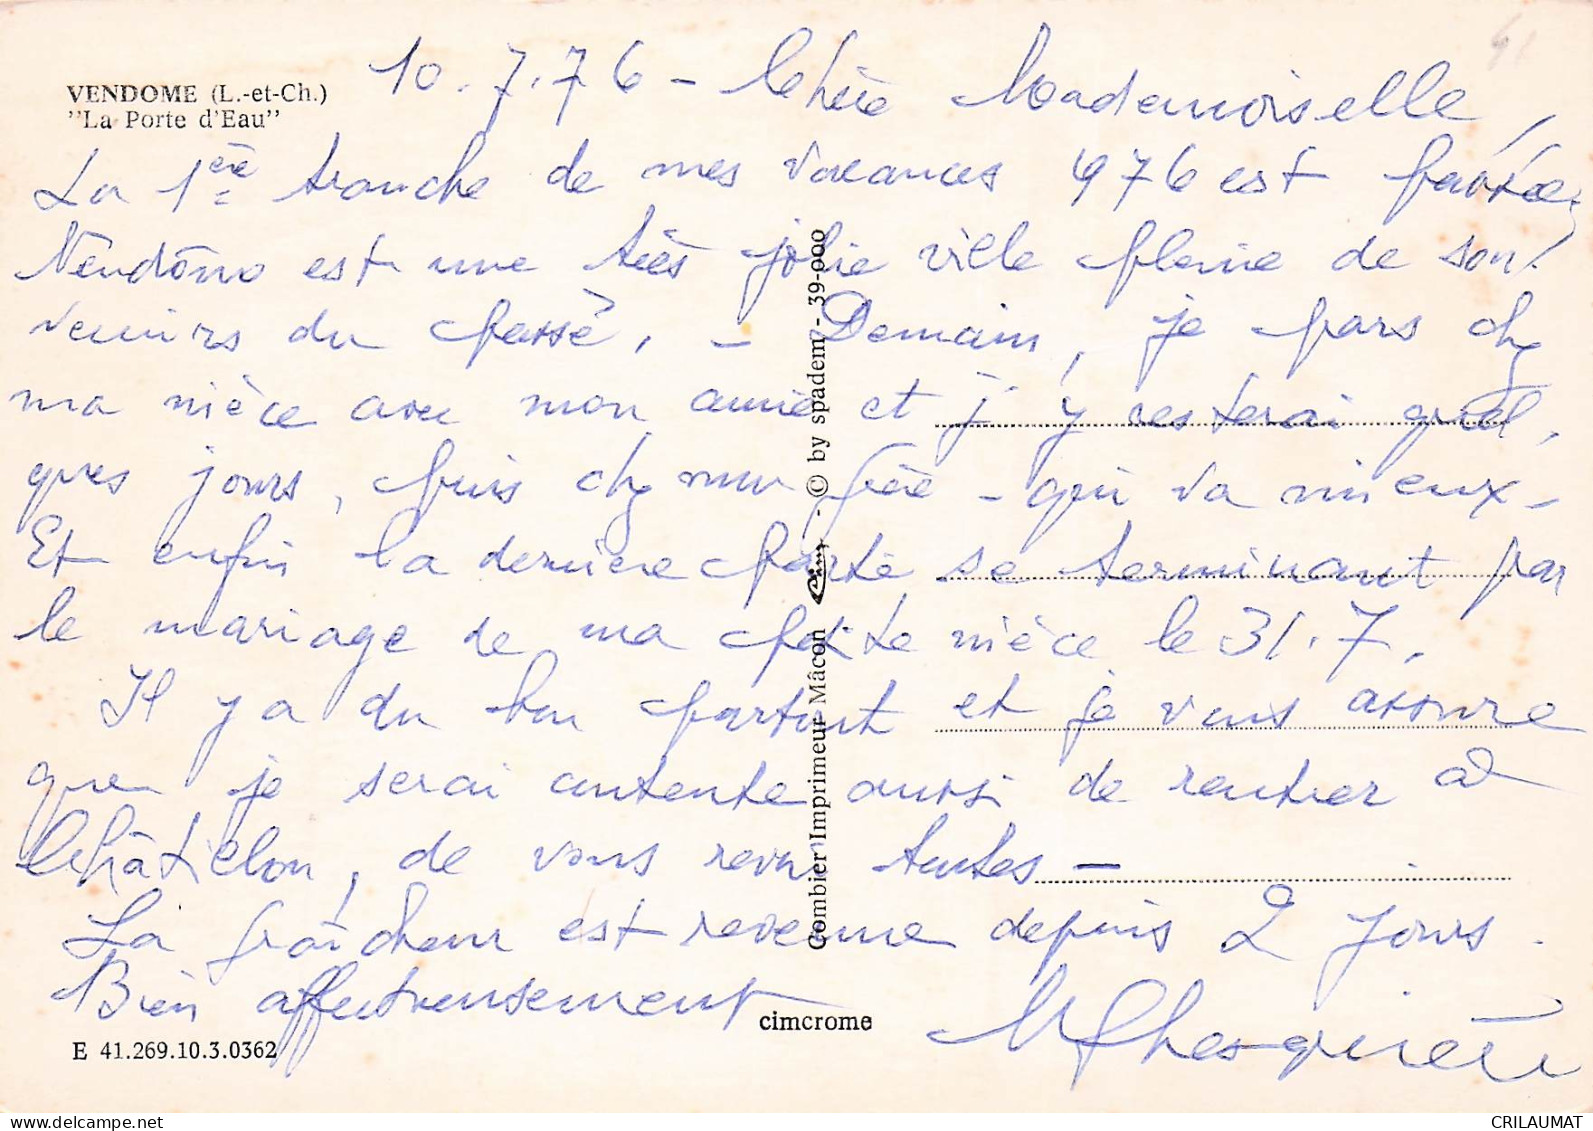 VENDOME (L.-et-Ch.)
"La Porte d'Eau"
10.7.76 - Chère Mademoiselle,
La 1ère tranche de mes vacances 1976 est passée,
Vendôme est une très jolie ville pleine de sou-
venirs du passé. - Demain, je pars chez
ma nièce avec mon amie et j'y resterai quel-
ques jours, puis chez mon frère - qui va mieux -
Et enfin la dernière partie se terminant par
le mariage de ma petite nièce le 31.7.
Il y a du bon partout et je vous assure
que je serai contente aussi de rentrer à
Châtillon, de vous revoir toutes -
La fraîcheur est revenue depuis 2 jours.
Bien affectueusement
cimcrome
E 41.269.10.3.0362
Combier Imprimeur Mâcon Cim - © by spadem - 39-000
41
CRILAUMAT